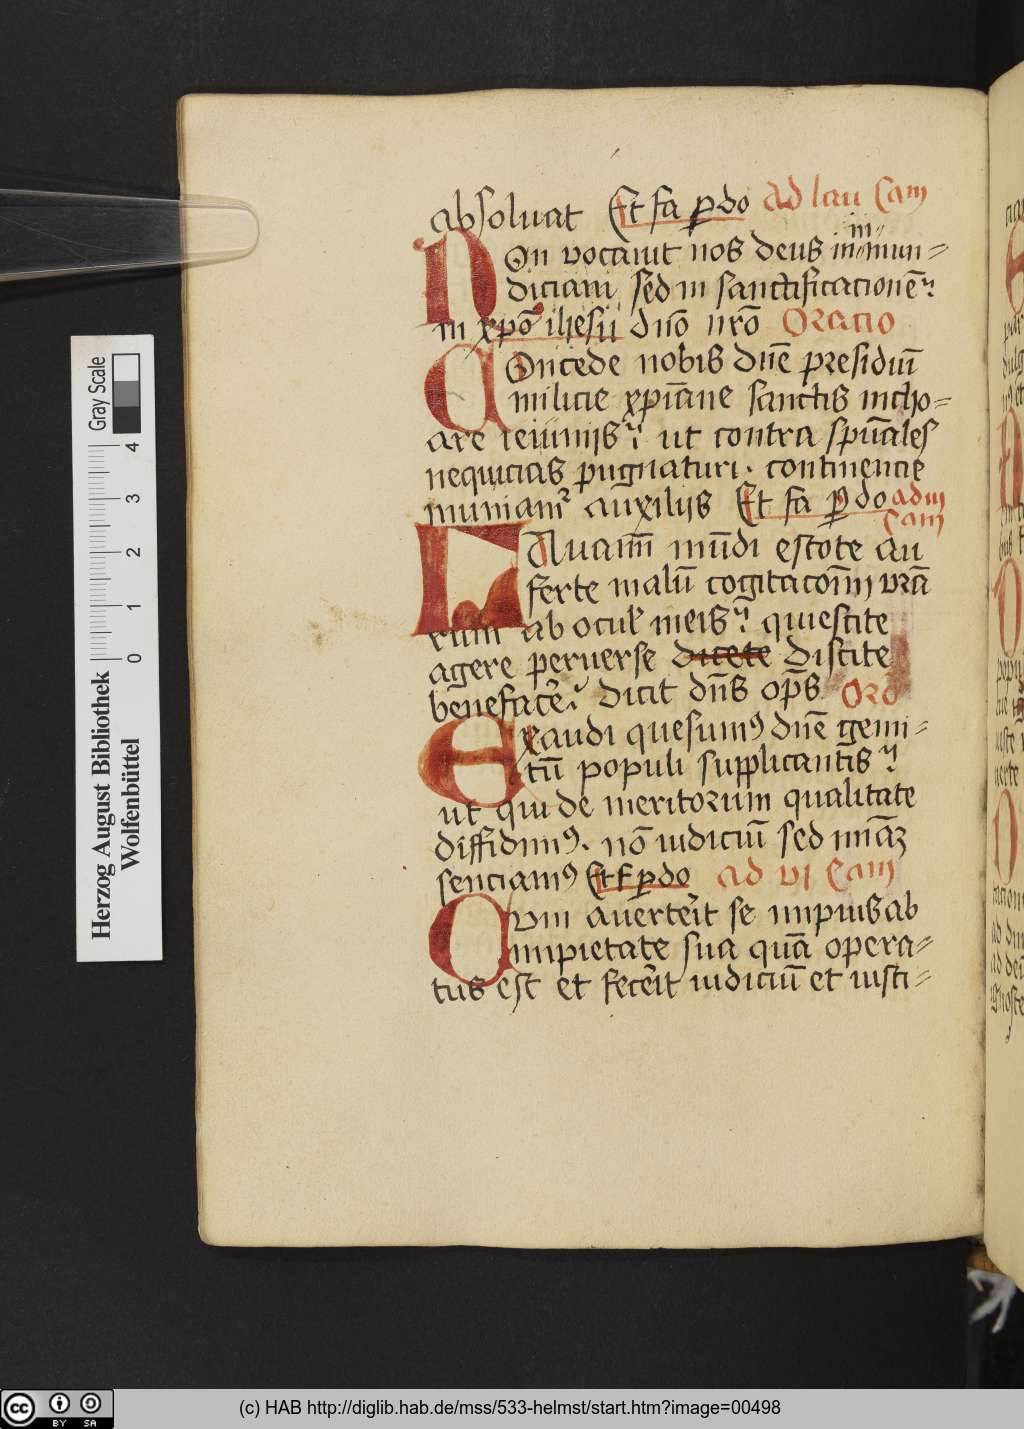 absoluat Et fa p do Ad lau Cam
Non vocauit nos deus in in mun-
diciam sed in sanctificacionē
in xpō ihesu dnō nrō Oracio
Concede nobis dnē presidiū
milicie xpiāne sanctis incho-
are ieiunijs ut contra spūales
nequicias pugnaturi. continencie
muniam~ auxilijs Et fa p do ad iii
Cam
Lauamī mūdi estote au
ferte malū cogitacoīm vrā
rum ab ocul meis quiescite
agere peruerse dicete discite
benefacē. dicit dñs op̄s Orō
Exaudi quesum9 dnē gemi-
tū populi supplicantis
ut qui de meritorum qualitate
diffidim9. nō iudiciū sed mīaz
senciam9 Et F p do ad vi Cam
Cum auerteīt se impius ab
impietate sua quā opera-
tus est et feceīt iudiciū et iusti-
Herzog August Bibliothek
Wolfenbüttel
0 1 2 3 4
Gray Scale
cc BY SA
(c) HAB http://diglib.hab.de/mss/533-helmst/start.htm?image=00498